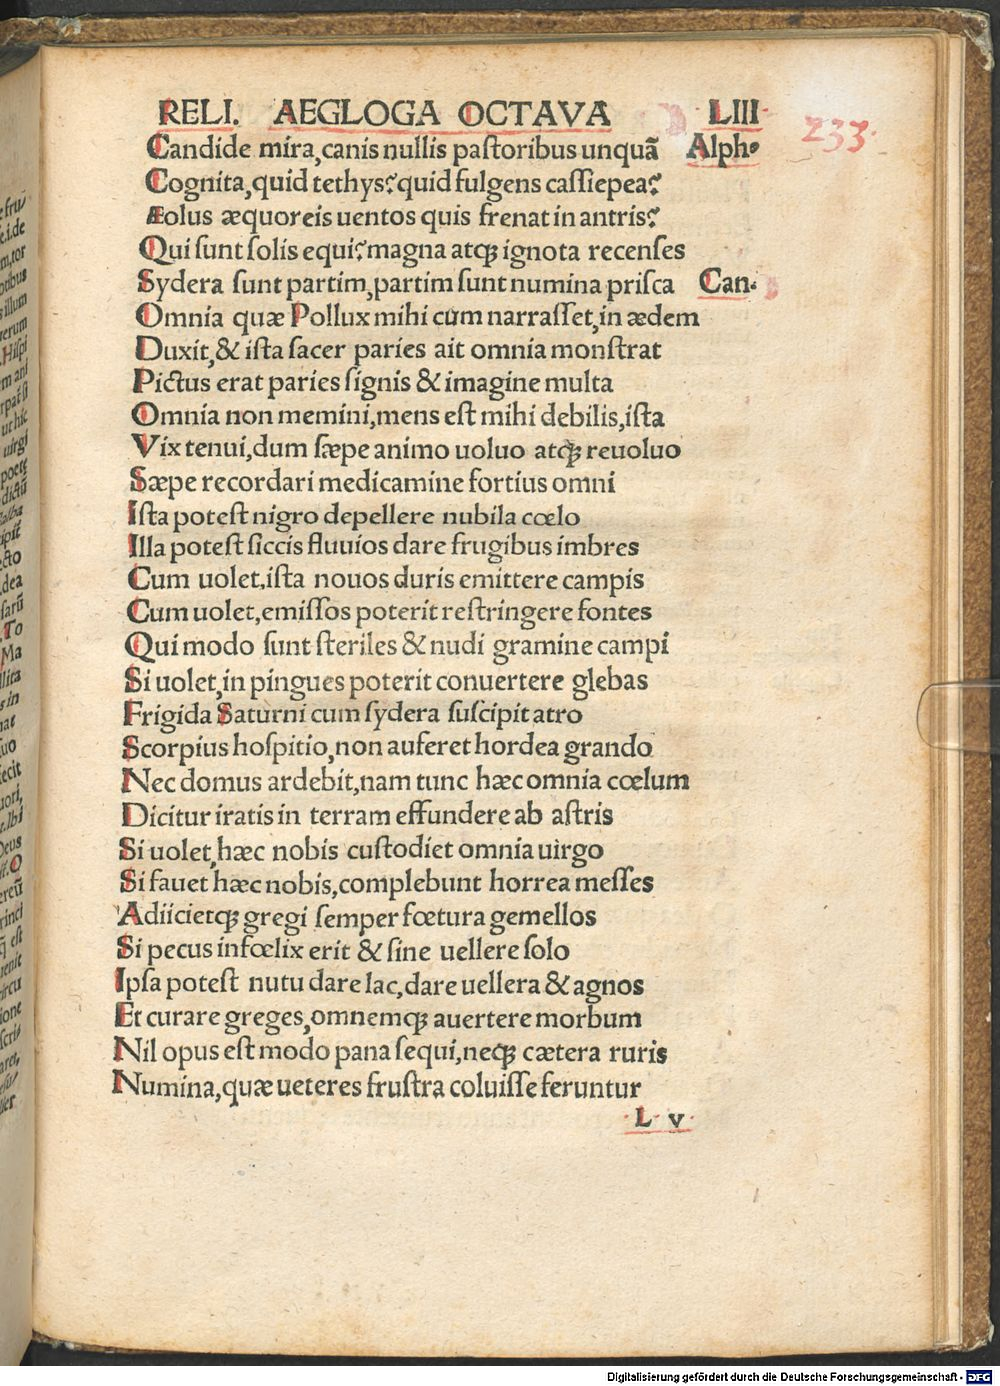 RELI. AEGLOGA OCTAVA LIII
233.
Candide mira,canis nullis paſtoribus unquã Alph.
Cognita,quid tethys?quid fulgens caſſiepea?
Æolus æquoreis uentos quis frenat in antris?
Qui ſunt ſolis equi?magna atqꝫ ignota recenſes
Sydera ſunt partim,partim ſunt numina priſca Can.
Omnia quæ Pollux mihi cum narraſſet,in ædem
Duxit,& iſta ſacer paries ait omnia monſtrat
Pictus erat paries ſignis & imagine multa
Omnia non memini,mens eſt mihi debilis,iſta
Vix tenui,dum ſæpe animo uoluo atqꝫ reuoluo
Sæpe recordari medicamine fortius omni
Iſta poteſt nigro depellere nubila cœlo
Illa poteſt ſiccis fluuios dare frugibus imbres
Cum uolet,iſta nouos duris emittere campis
Cum uolet,emiſſos poterit reſtringere fontes
Qui modo ſunt ſteriles & nudi gramine campi
Si uolet,in pingues poterit conuertere glebas
Frigida Saturni cum ſydera ſuſcipit atro
Scorpius hoſpitio,non auferet hordea grando
Nec domus ardebit,nam tunc hæc omnia cœlum
Dicitur iratis in terram effundere ab aſtris
Si uolet,hæc nobis cuſtodiet omnia uirgo
Si fauet hæc nobis,complebunt horrea meſſes
Adiicietqꝫ gregi ſemper fœtura gemellos
Si pecus infœlix erit & ſine uellere ſolo
Ipſa poteſt nutu dare lac,dare uellera & agnos
Et curare greges,omnemqꝫ auertere morbum
Nil opus eſt modo pana ſequi,neqꝫ cætera ruris
Numina,quæ ueteres fruſtra coluiſſe feruntur
L v
Digitalisierung gefördert durch die Deutsche Forschungsgemeinschaft - DFG